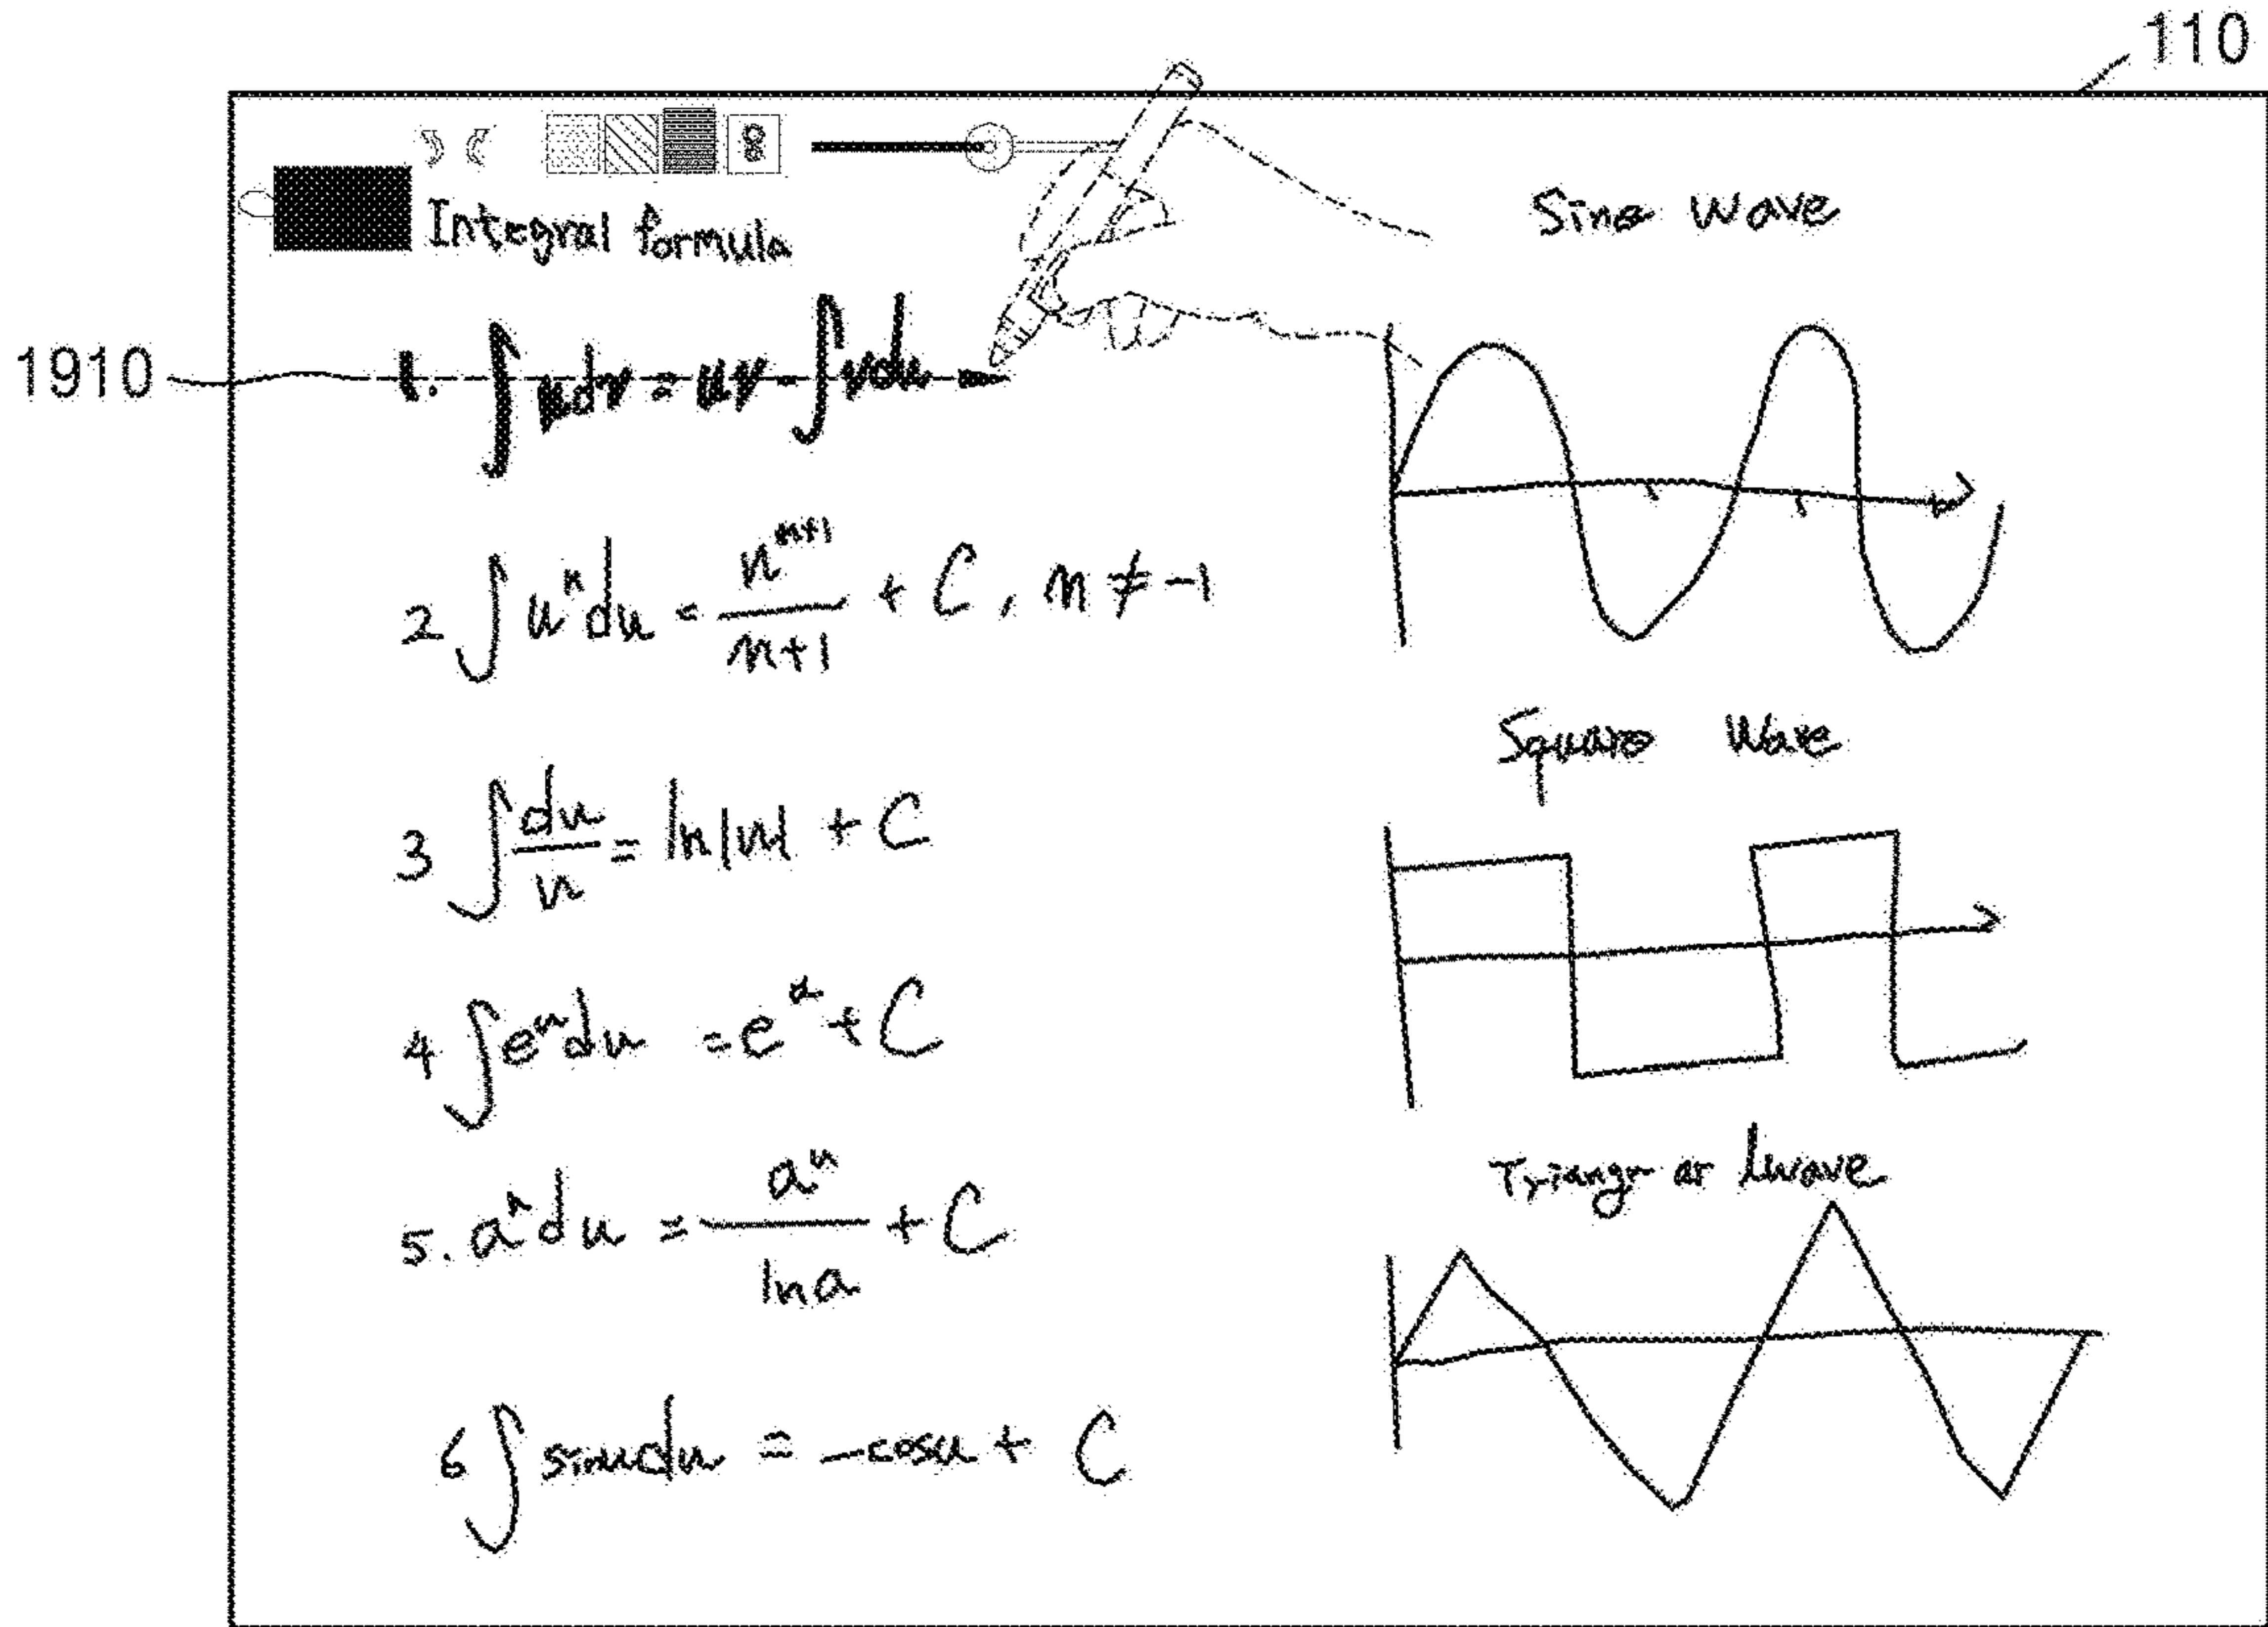 110
Integral formula
1910
1. ∫udv = uv - ∫vdu
2 ∫uⁿdu = uⁿ⁺¹/n+1 + C, n ≠ -1
3 ∫du/u = ln|u| + C
4 ∫eᵘdu = eᵘ + C
5. aⁿdu = aᵘ/lna + C
6 ∫sinudu = -cosu + C
Sine Wave
Square Wave
Triangr ar lwave